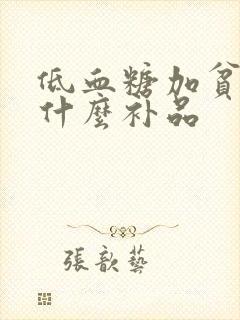 低血糖加貧
什麼补品
張歆藝